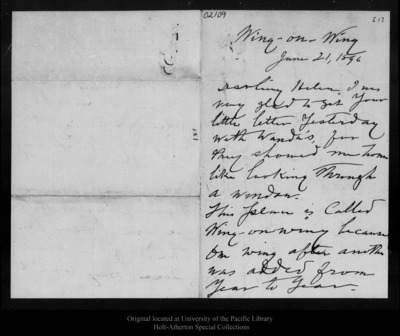 02109
Wing-on-Wing
June 21, 1896
Darling Helen, I was
very glad to get your
little letter Yesterday
with Wanda's, for
they showed me home
like looking through
a window.
This place is Called
Wing-on-wing because
one wing after another
was added from
Year to Year.
Original located at University of the Pacific Library
Holt-Atherton Special Collections